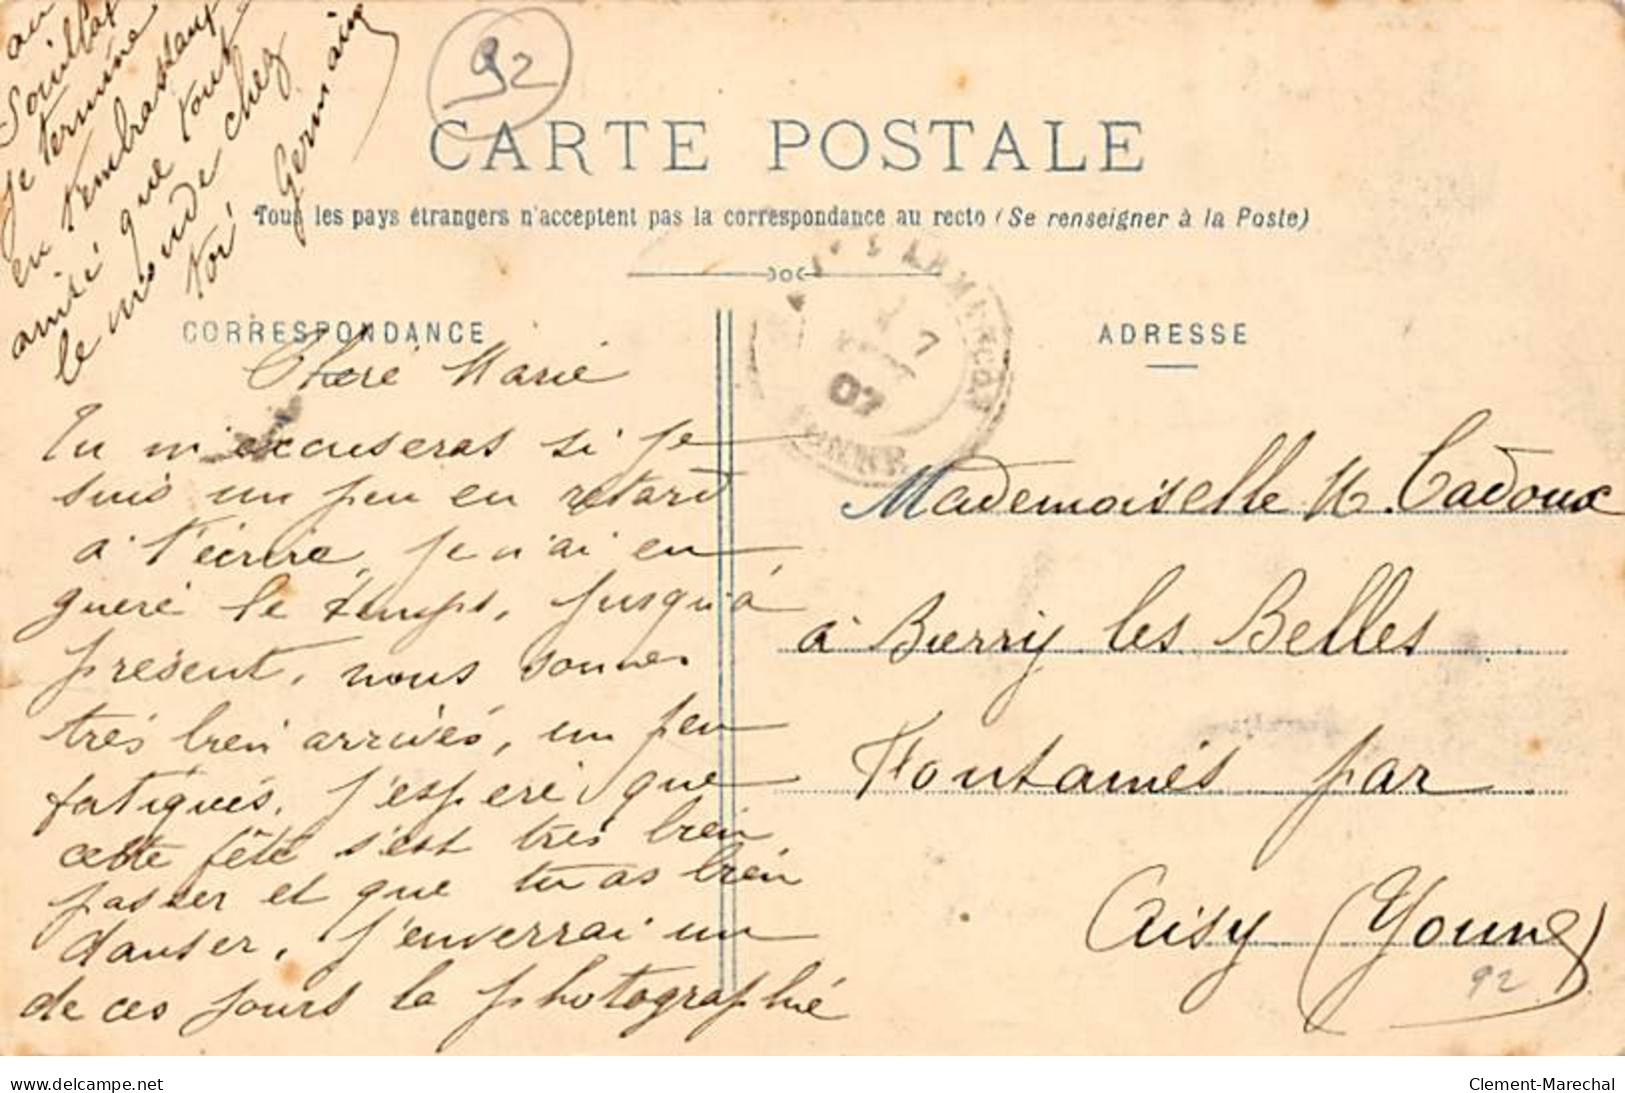 92
CARTE POSTALE
Tous les pays étrangers n'acceptent pas la correspondance au recto (Se renseigner à la Poste)
CORRESPONDANCE
Cheré Marie
Tu m'excuseras si je
suis un peu en retard
a t'écrire, je n'ai eu
gueré le temps, jusqu'á
présent, nous sommes
trés bien arrivés, un peu
fatigués. J'esperé que
cette fête s'est trés bien
passer et que tu as bien
danser, j'enverrai un
de ces jours la photographié
au
Souillat
Je terminé
en t'embrassant
amsi que tout
le monde chez
toi Germain
ADRESSE
07
Mademoiselle M. Cadoux
a Bierry les Belles
Fontainés par
Aisy (Yonne)
92
www.delcampe.net
Clement-Marechal